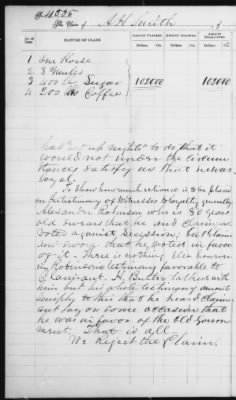 No 1525
The Claim of A H Smith
NATURE OF CLAIM. AMOUNT CLAIMED. AMOUNT ALLOWED. AMOUNT DISALLOWED.
Dollars. Cts. Dollars. Cts. Dollars. Cts.
1 One Horse
2 3 Mules
3 400 lbs Sugar 1020 00 1020 00
4 200 lbs Coffee
had "up nights" to do that it
would not under the circum
stances satisfy us that he was
loyal.
To show how much reliance is to be placed
on the testimony of witnesses to loyalty generally
Alexander Robinson who is 30 years
old swears that he and Claimant
voted against Secession, but Claim
ant swore that he voted in favor
of it. There is nothing else however
in Robinson's testimony favorable to
Claimant. H. Butler talked with
him but his whole testimony amounts
simply to this that he heard Claim
ant say on some occasion that
he was in favor of the old Govern
ment. That is all.
We reject the Claim.